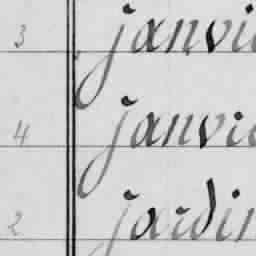 3 janvie
4 janvie
2 jardin